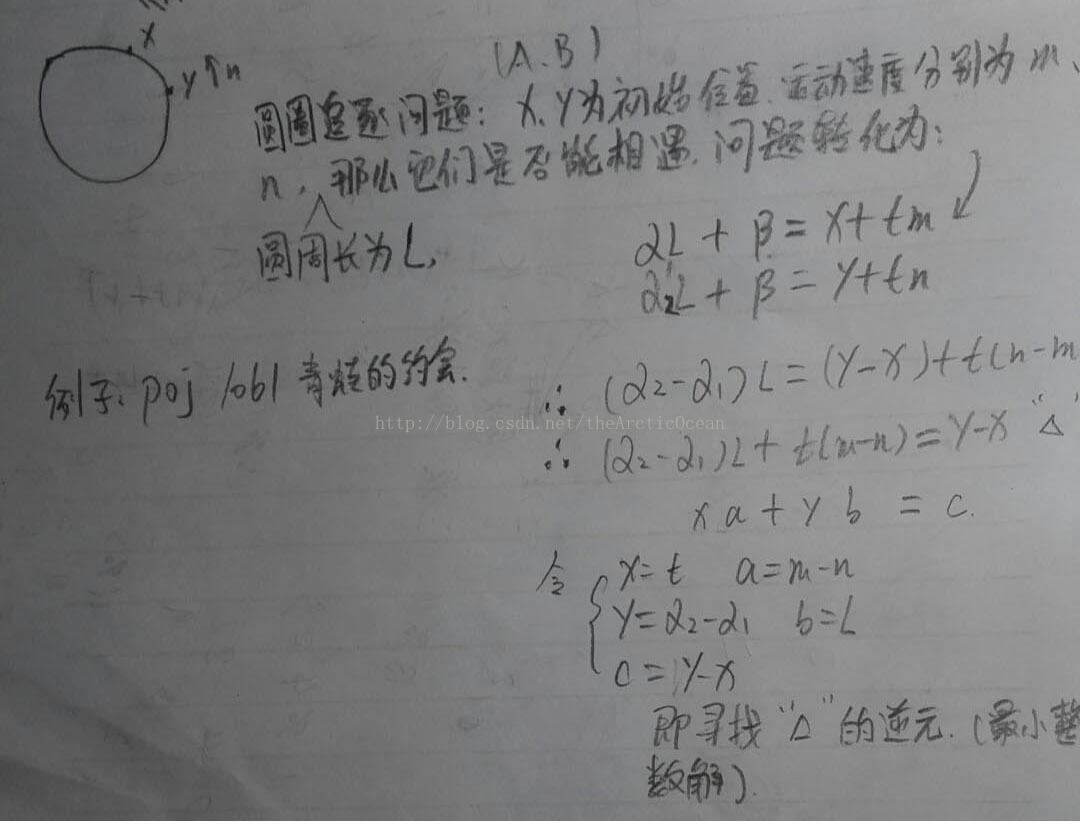 X
Y↑n
(A.B)
圆圈追逐问题: X.Y为初始位置.运动速度分别为m、
n, 那么它们是否能相遇.问题转化为:
圆周长为L,
α₁L + β = X + tm
α₂L + β = Y + tn
例子: poj 1061 青蛙的约会.
∴ (α₂-α₁)L = (Y-X) + t(n-m
http://blog.csdn.net/theArcticOcean
∴ (α₂-α₁)L + t(m-n) = Y-X "△"
xa + yb = c.
令 x=t a=m-n
y=α₂-α₁ b=L
c=Y-X
即寻找"△"的逆元.(最小整
数解).